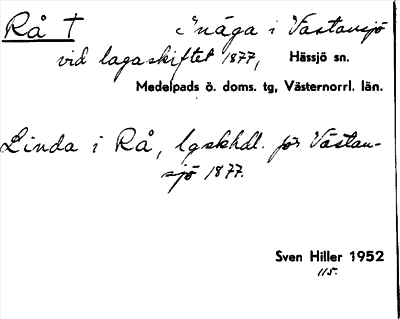 Rå † Inäga i Västansjö
vid lagaskiftet 1877, Hässjö sn.
Medelpads ö. doms. tg, Västernorrl. län.
Linda i Rå, lgskhdl. för Västan-
sjö 1877.
Sven Hiller 1952
115.